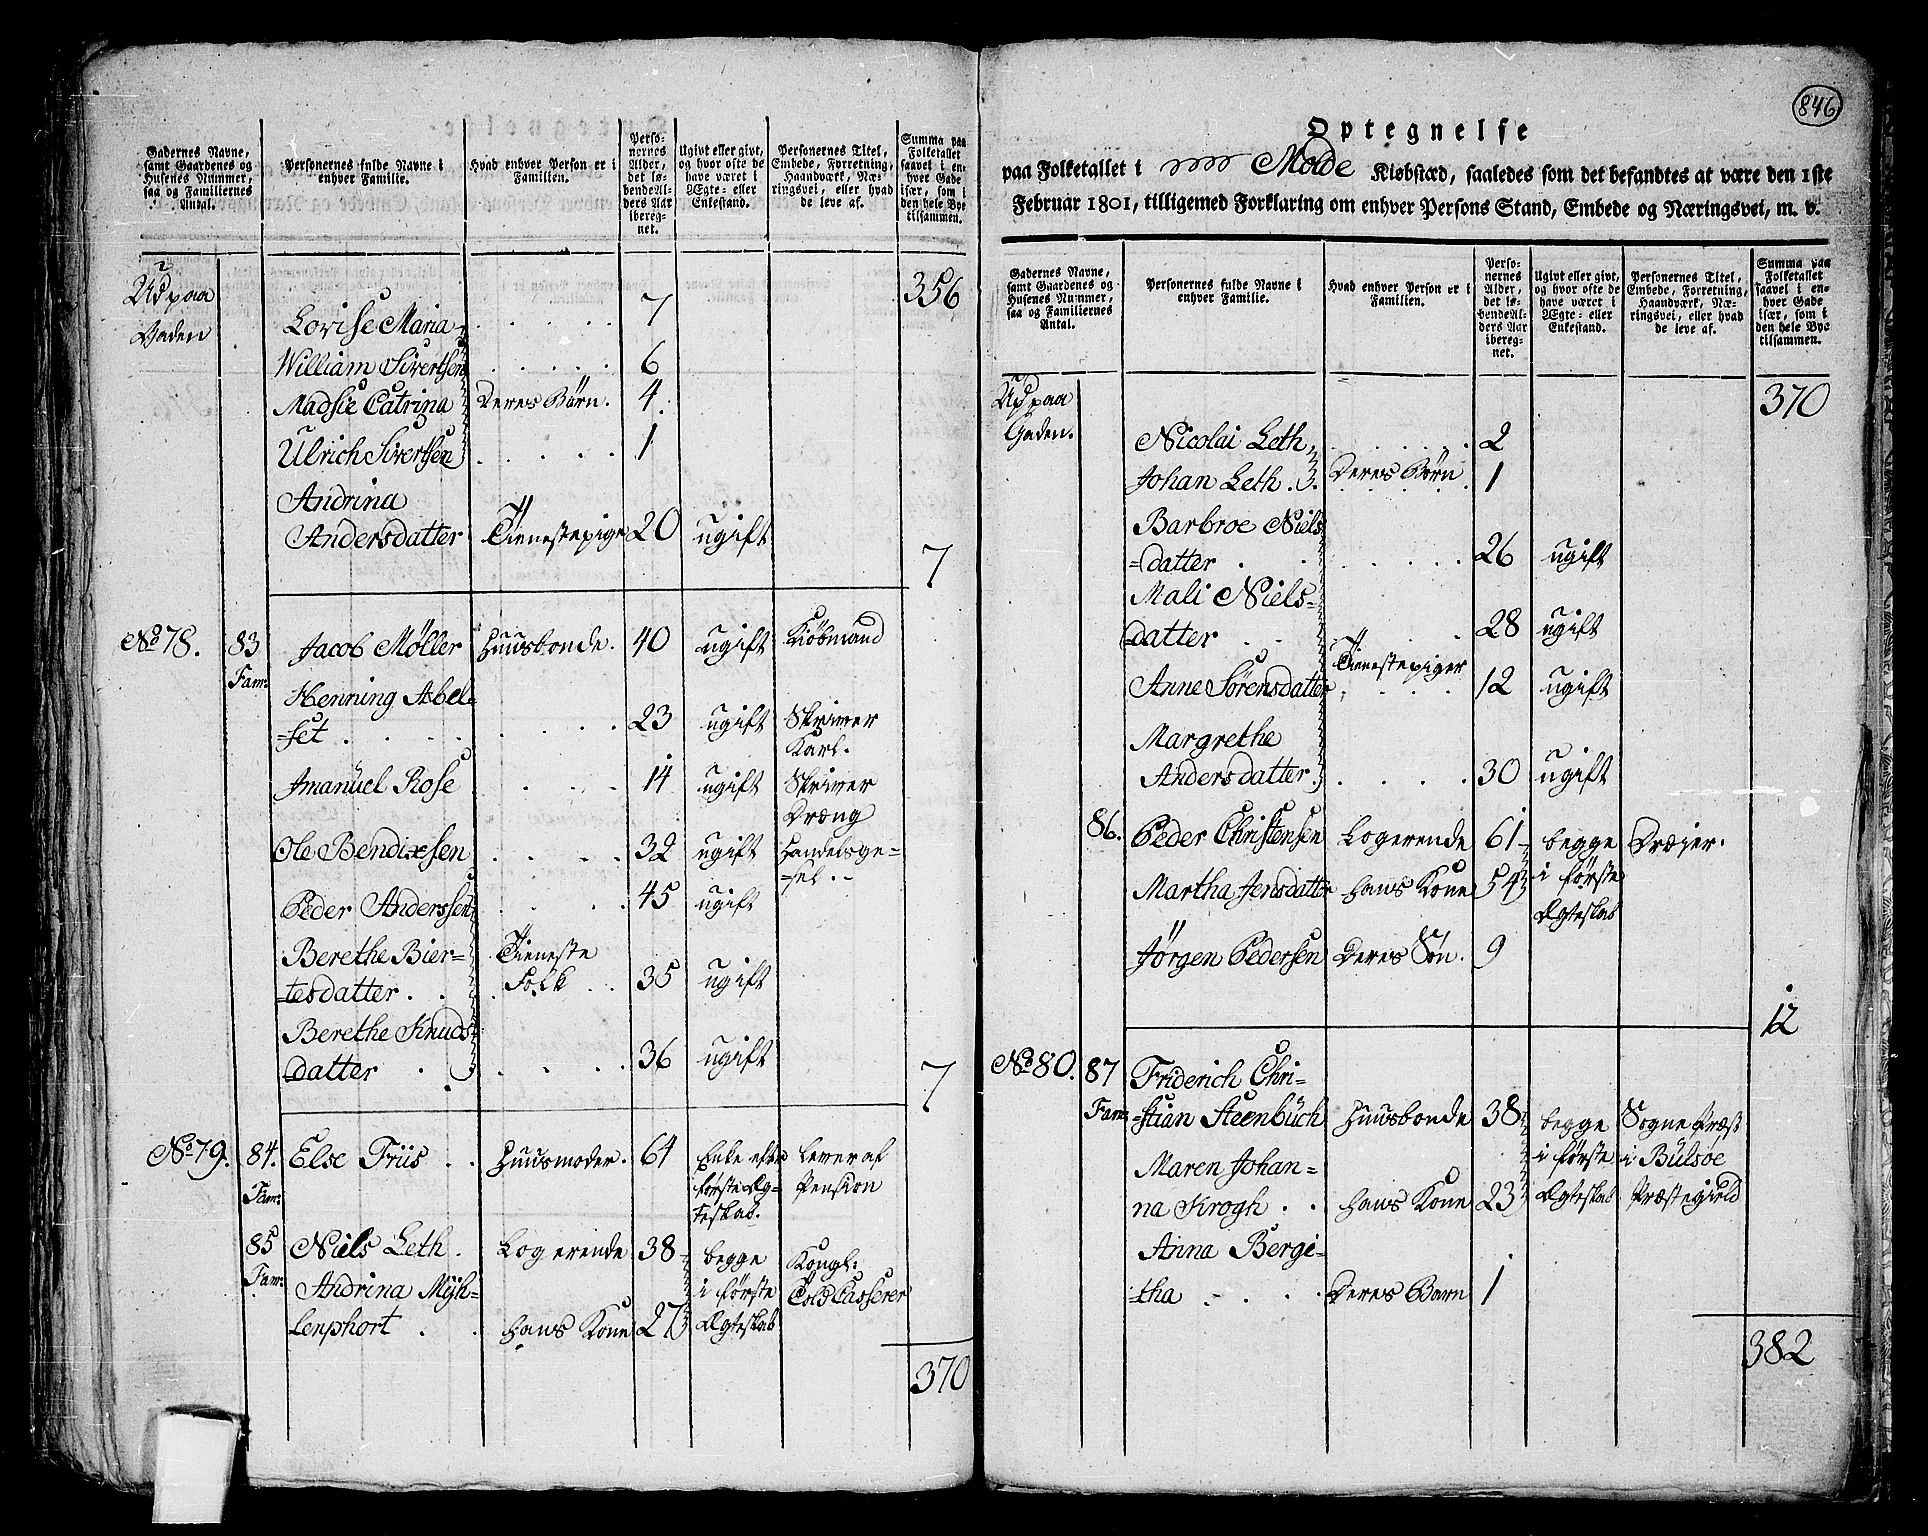 Gadernes Navne, samt Gaardenes og Husenes Nummer, saa og Familiernes Antal.
Personernes fulde Navne i enhver Familie.
Hvad enhver Person er i Familien.
Personernes Alder, det løbende Alders Aar iberegnet.
Ugivt eller givt, og hvor ofte de have været i Ægte- eller Enkestand.
Personernes Titel, Embede, Forretning, Haandværk, Næringsvei, eller hvad de leve af.
Summa paa Folketallet saavel i enhver Gade især, som i den hele Bye tilsammen.
Ud paa Gaden
356
Lovise Maria . . . . . 7
William Sivertsen . . . . . 6
Madsie Catrina Deres Børn. 4.
Ulrich Sivertsen . . . . . 1
Andrina
Andersdatter Tienestepige 20 ugift
7
No 78. 83 Fam: Jacob Møller Huusbonde. 40 ugift Kiøbmand
Henning Abel=
=set . . . . 23 ugift Skriver Karl.
Imanüel Rose . . . . 14 ugift Skriver Dræng
Ole Bendixsen . . . . 32 ugift Handelsge=
=sel.
Peder Anderssen . . . . 45 ugift
Berethe Bier=
=tesdatter . . Tieneste Folk . . 35 ugift
Berethe Knuds
datter . . . . . 36 ugift
7
No 79. 84. Fam: Else Friis . . Huusmoder. 64 Enke efter første Æg=
teskab. Lever af Pension
85 Fam: Niels Leth . Logerende 38 begge i første Ægteskab Kongl: Told Casserer
Andrina Mÿh=
lenphort . . hans Kone 27
370
846
Optegnelse
paa Folketallet i Molde Kiøbstæd, saaledes som det befandtes at være den 1ste
Februar 1801, tilligemed Forklaring om enhver Persons Stand, Embede og Næringsvei, m. v.
Gadernes Navne, samt Gaardenes og Husenes Nummer, saa og Familiernes Antal.
Personernes fulde Navne i enhver Familie.
Hvad enhver Person er i Familien.
Personernes Alder, det løbende Alders Aar iberegnet.
Ugivt eller givt, og hvor ofte de have været i Ægte- eller Enkestand.
Personernes Titel, Embede, Forretning, Haandværk, Næringsvei, eller hvad de leve af.
Summa paa Folketallet saavel i enhver Gade især, som i den hele Bye tilsammen.
Ud paa Gaden.
370
Nicolai Leth . . . . . 2
Johan Leth . Deres Børn 1
Barbroe Niels
=datter . . . . . 26 ugift
Mali Niels=
datter . . . . 28 ugift
Tienestepiger
Anne Sørensdatter . . . . 12 ugift
Margrethe
Andersdatter . . . . 30 ugift
86. Peder Christensen Logerende 61 begge i første Ægteskab Dræjer.
Martha Jensdatter hans Kone 54
Jørgen Pedersen Deres Søn. 9
12
No 80. 87 Fam: Friderich Chri=
=stian Steenbüch Huusbonde 38 begge i første Ægteskab Sogne Præst i Bülsøe Præstegield
Maren Johan=
na Krogh . . hans Kone 23
Anna Bergi=
=tha . . . Deres Barn 1
382